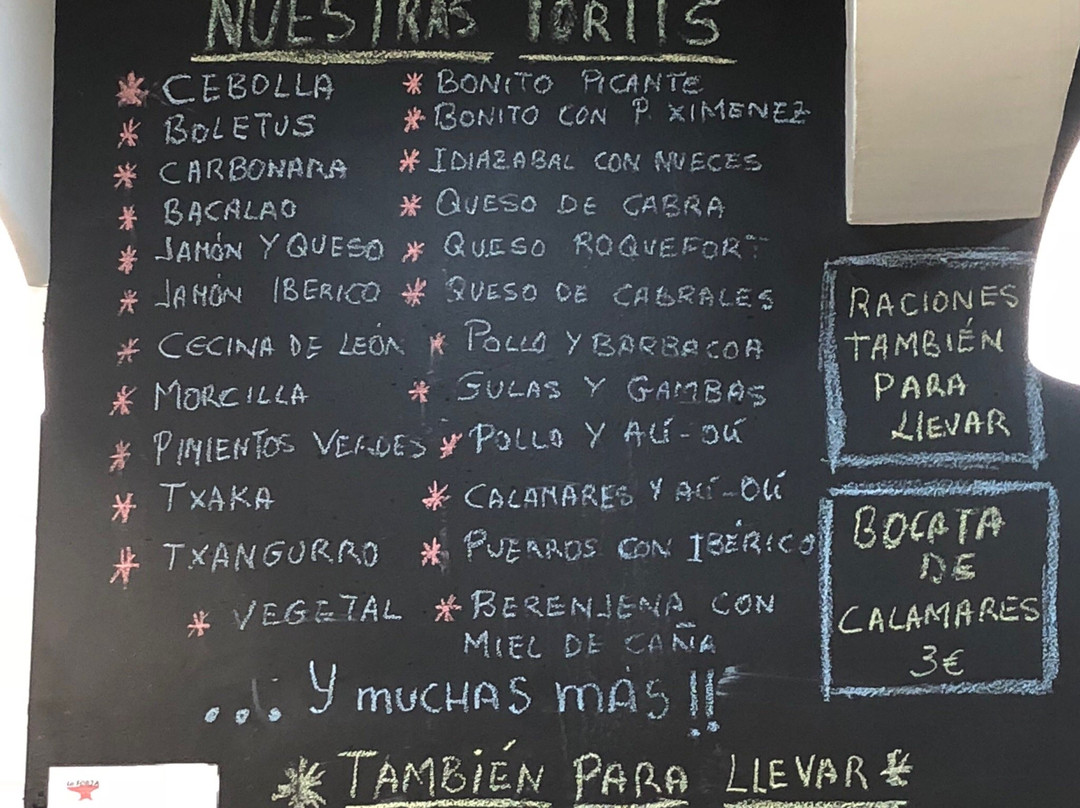 NUESTRAS TORTIS
* CEBOLLA
* BOLETUS
* CARBONARA
* BACALAO
* JAMÓN Y QUESO
* JAMÓN IBERICO
* CECINA DE LEÓN
* MORCILLA
* PIMIENTOS VERDES
* TXAKA
* TXANGURRO
* VEGETAL
* BONITO PICANTE
* BONITO CON P. XIMENEZ
* IDIAZABAL CON NUECES
* QUESO DE CABRA
* QUESO ROQUEFORT
* QUESO DE CABRALES
* POLLO Y BARBACOA
* GULAS Y GAMBAS
* POLLO Y ALÍ-OLÍ
* CALAMARES Y ALÍ-OLÍ
* PUERROS CON IBÉRICO
* BERENJENA CON
MIEL DE CAÑA
... Y MUCHAS MÁS!!
* TAMBIÉN PARA LLEVAR *
RACIONES
TAMBIÉN
PARA
LLEVAR
BOCATA
DE
CALAMARES
3€
La FORJA